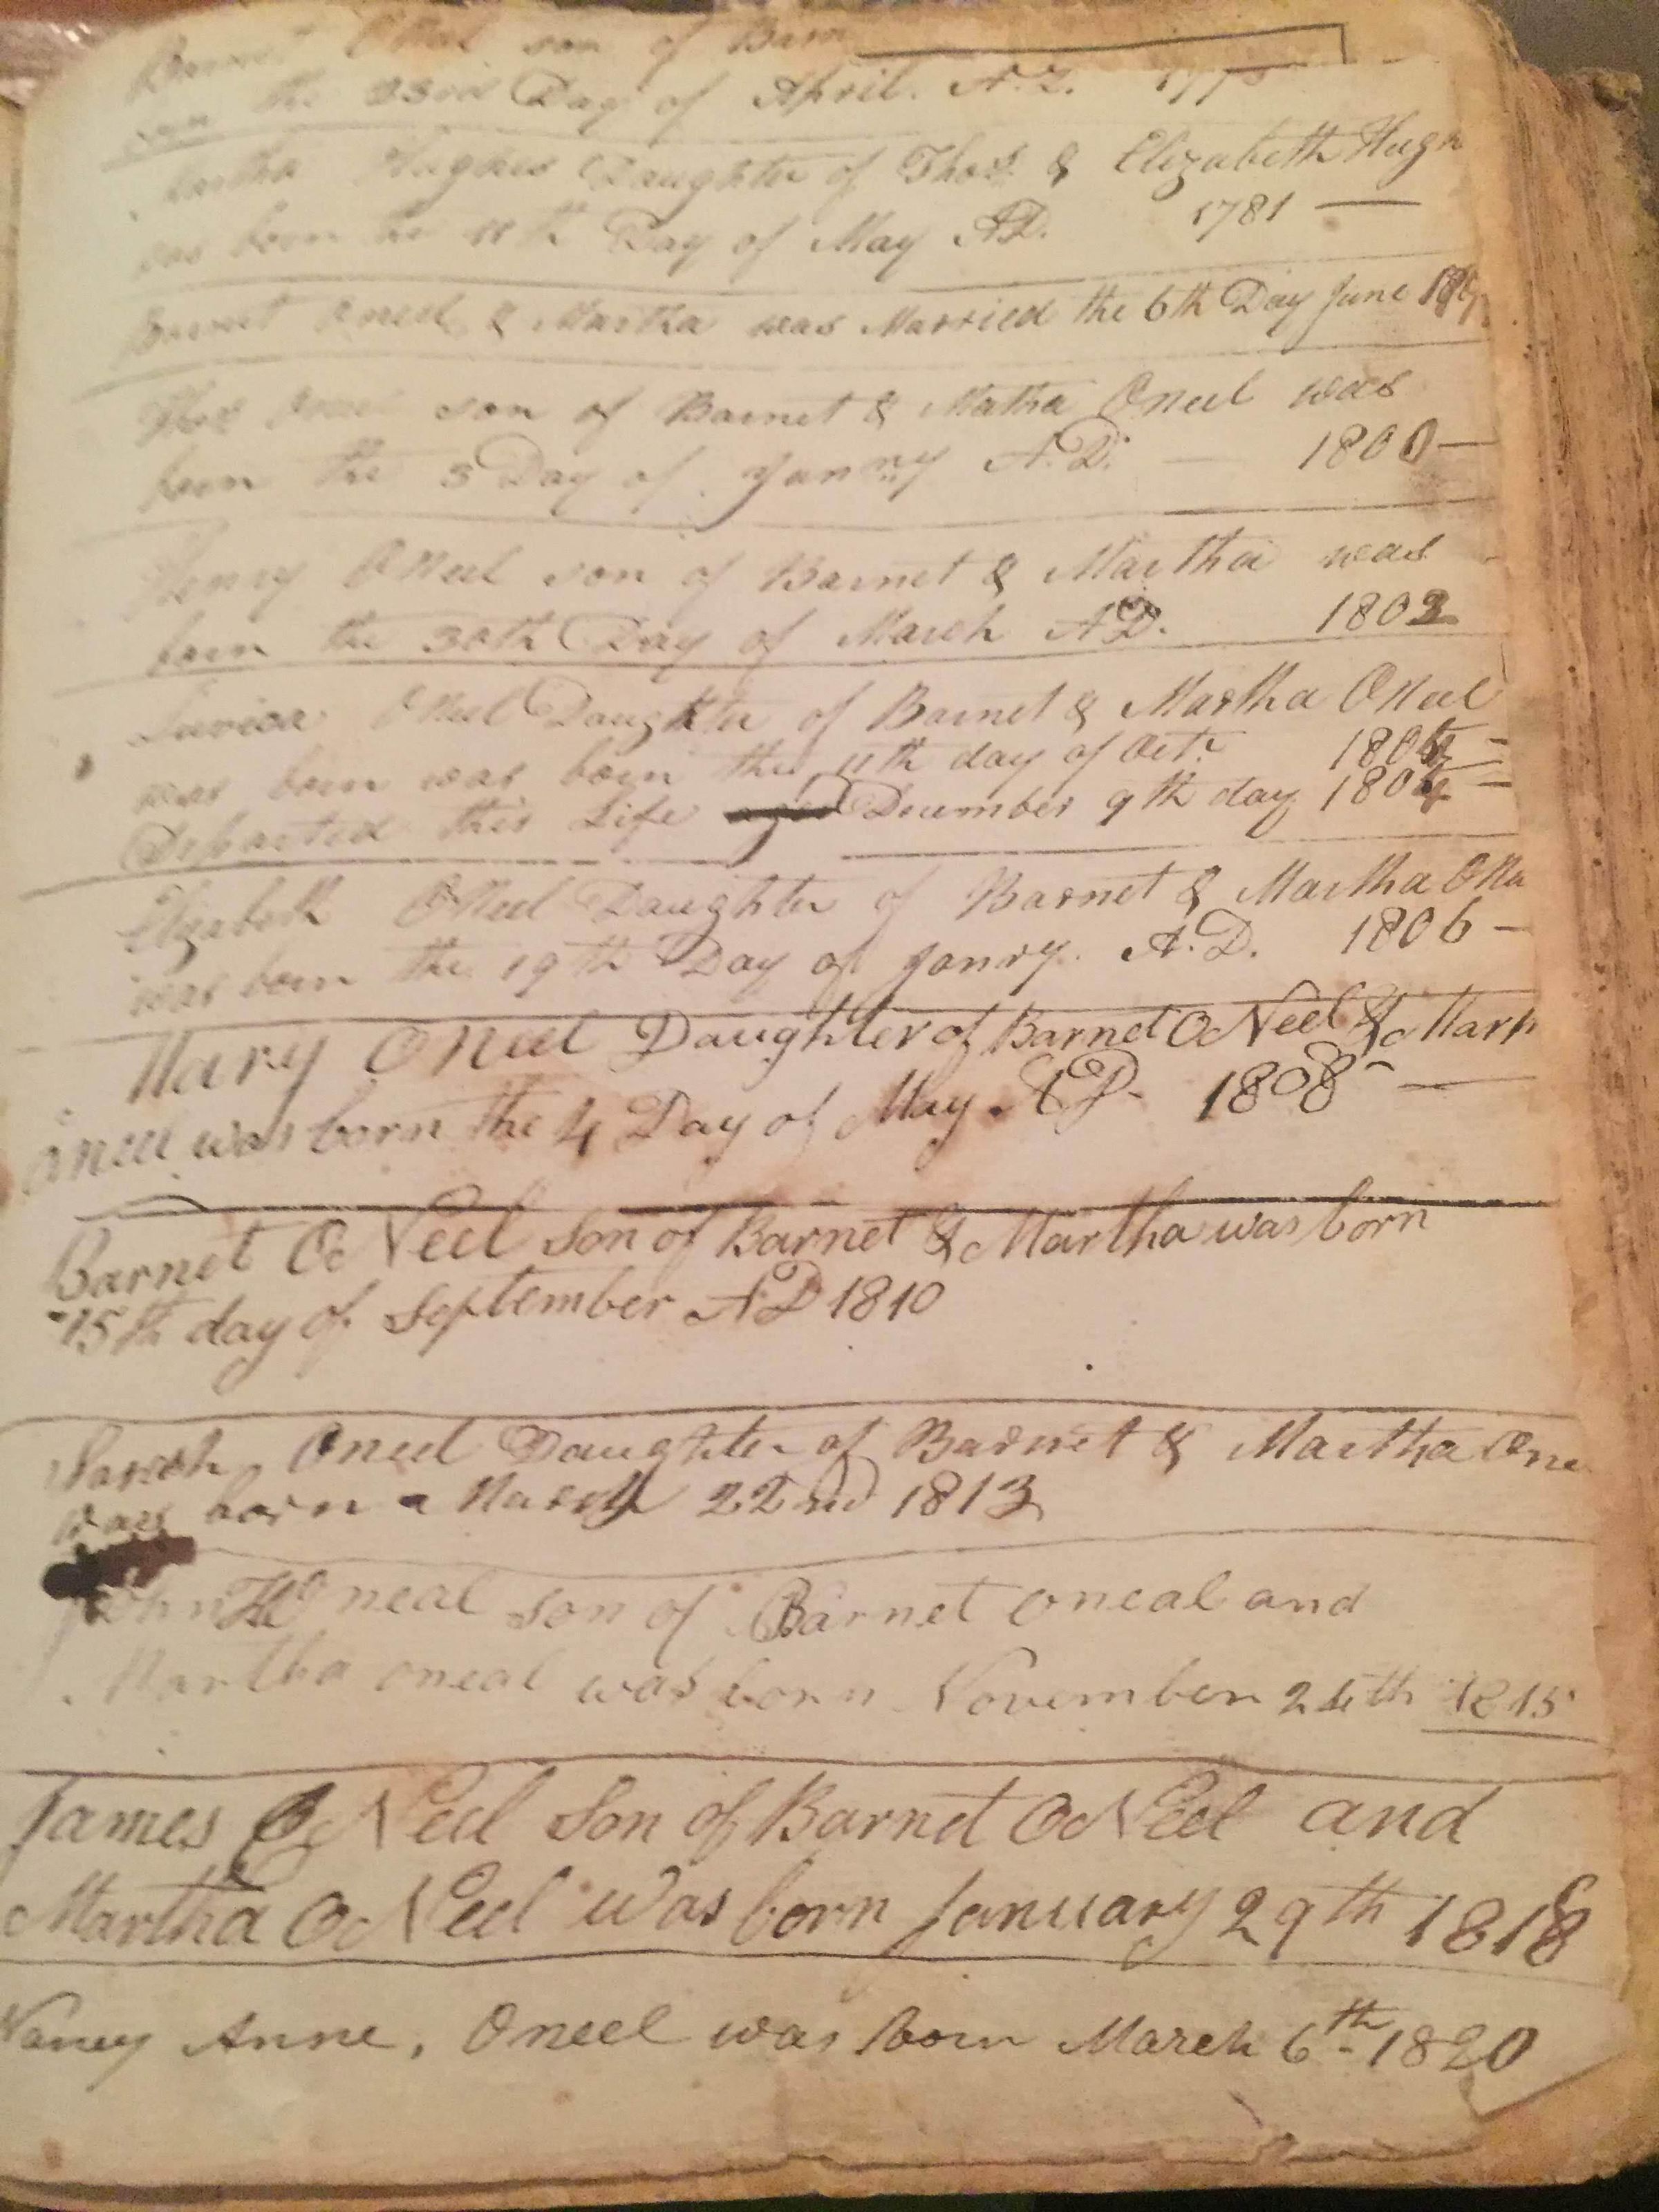 son of Barn
the 23rd Day of April. A.D. 177
Martha Hughes Daughter of Thos. & Elizabeth Hugh
was born the 11th Day of May A.D. 1781 —
Barnet Oneel & Martha was Married the 6th Day June
Thos Oneel son of Barnet & Matha ONeel was
born the 5 Day of Janry A.D. — 1800 —
Henry ONeel son of Barnet & Martha was
born the 30th Day of March A.D. 1802
ONeel Daughter of Barnet & Martha ONeel
was born was born the 11th day of Oct. 1804 =
Departed this Life aged December 9th day 1804 =
Elizabeth ONeel Daughter of Barnet & Martha ONe
was born the 19th Day of Janry. A.D. 1806 –
Mary ONeel Daughter of Barnet O Neel & Mart
Oneel was born the 4 Day of May AD. 1808 —
Barnet O Neel Son of Barnet & Martha was born
15th day of September AD 1810
Sarah Oneel Daughter of Barnet & Martha One
was born March 22nd 1813
John Oneal son of Barnet oneal and
Martha oneal was born November 24th 1815
James O Neel Son of Barnet O Neel and
Martha O Neel was born January 29th 1818
Nancy Anne, Oneel was born March 6th 1820